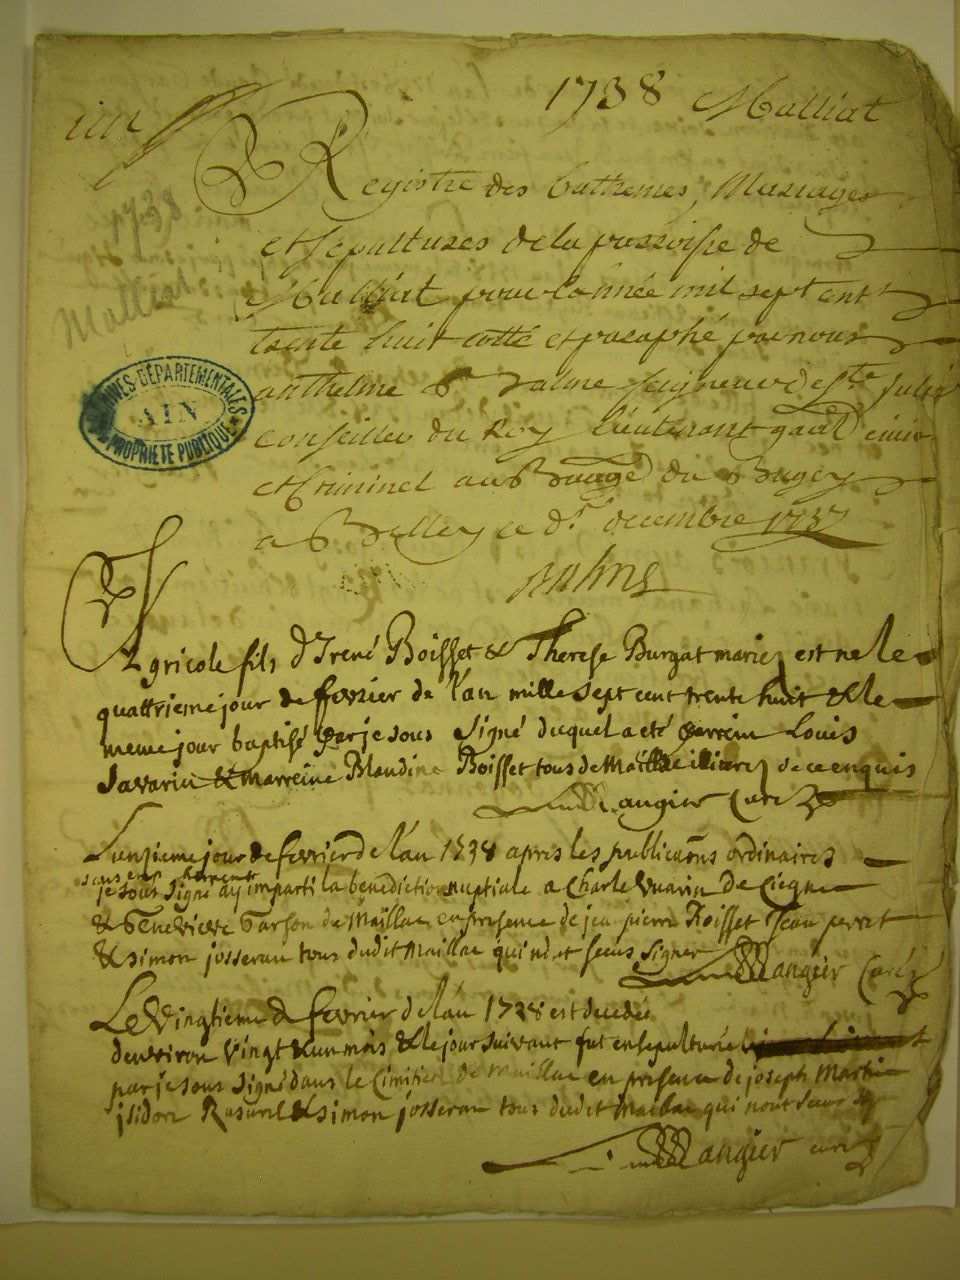 1738 Malliat
1738
Malliat
Registre des bathemes, Mariages
et sepultures de la parroisse de
Malliat pour lannée mil sept cent
trente huit cotté et paraphé par nous
anthelme Balme seigneur de Ste Julie
Conseiller du Roy lieutenant gnal civil
et Criminel au Bailage du Bugey
a Belley ce decembre 1737
Balme
ARCHIVES DÉPARTEMENTALES
AIN
PROPRIÉTÉ PUBLIQUE
Agricole fils d Irené Boisset & Therese Burgat mariez est né le
quattrieme jour de fevrier de l'an mille sept cent trente huit & le
meme jour baptisé par je sous signé duquel a eté parrein Louis
Savarin & Marreine Blandine Boisset tous de Maillac de ce enquis
Langier Curé
L'unzieme jour de fevrier de l'an 1738 apres les publicaõns ordinaires
je sous signé ay imparti la benediction nuptiale a Charle Vuarin de Ciegne
& Genevieve Garson de Maillac en presence de jeu pierre Roisset Jean perrat
& simon josseran tous dudit Maillac qui n'ont sceus signer
Langier Curé
Le Vingtieme de fevrier de l'an 1738 est decedée
d'environ vingt & un mois & le jour suivant fut ensepulturée
par je sous signé dans le Cimitiere de Maillac en presence de joseph Martin
isidore Ravurel & simon josseran tous dudit Maillac qui n'ont sceus
Langier curé